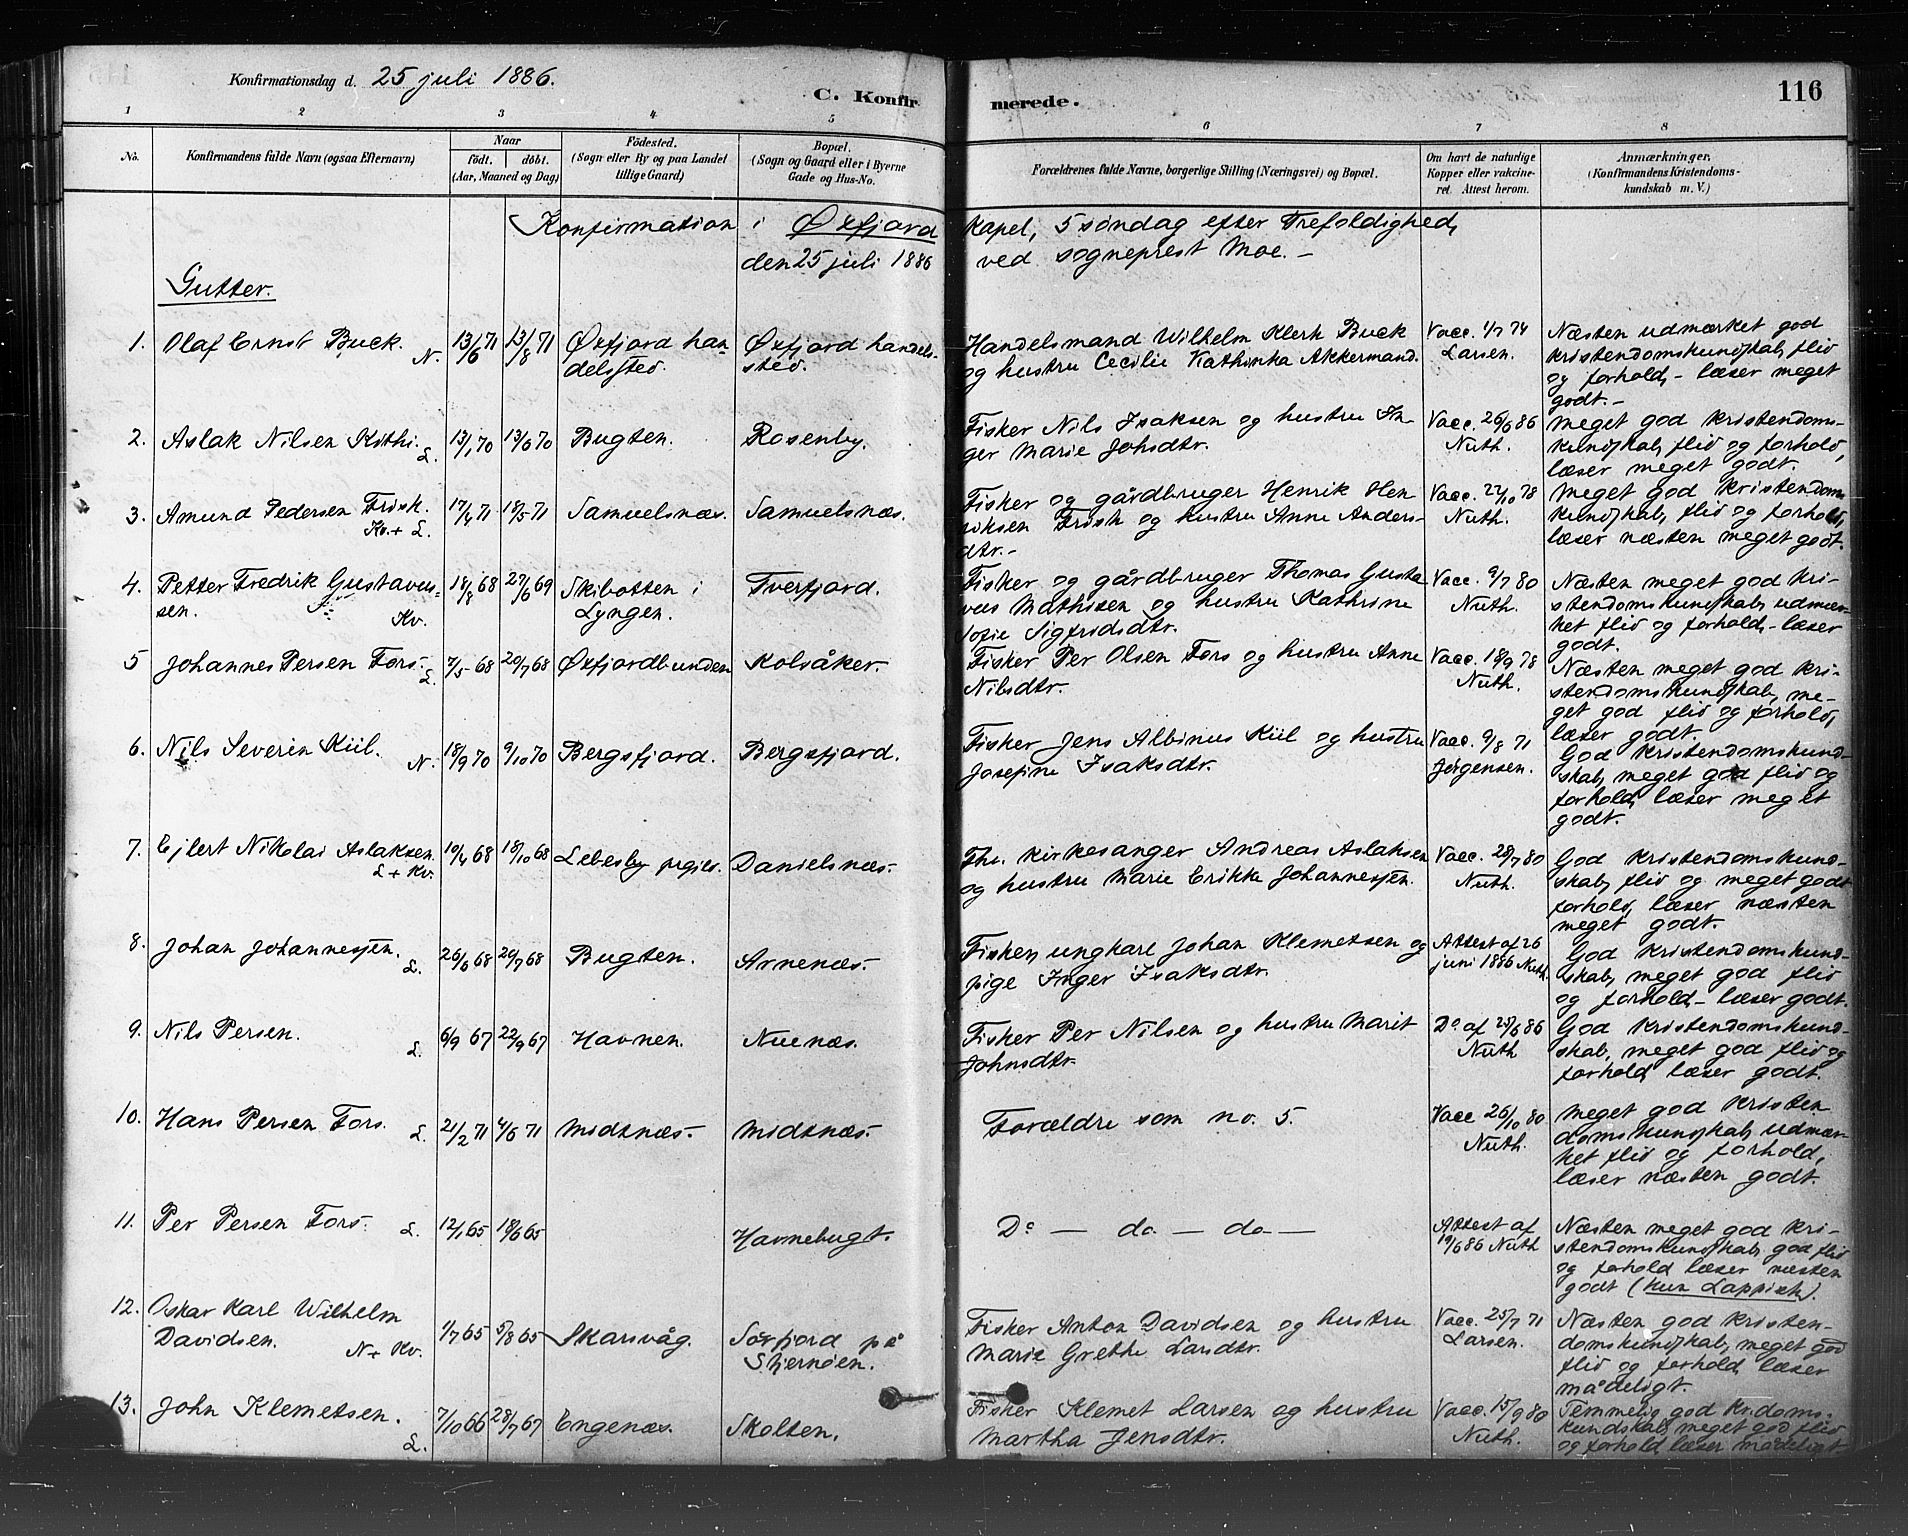 Konfirmationsdag d. 25 juli 1886.
C. Konfirmerede.
116
1 2 3 4 5 6 7 8
No. Konfirmandens fulde Navn (ogsaa Efternavn) Naar født. døbt. (Aar, Maaned og Dag) Fødested. (Sogn eller By og paa Landet tillige Gaard) Bopæl. (Sogn og Gaard eller i Byerne Gade og Hus-No. Forældrenes fulde Navne, borgerlige Stilling (Næringsvei) og Bopæl. Om havt de naturlige Kopper eller vaccineret. Attest herom. Anmærkninger. (Konfirmandens Kristendomskundskab m. V.)
Konfirmation i Øxfjord kapel, 5 søndag efter Trefoldighed,
den 25 juli 1886 ved sogneprest Moe. –
Gutter.
1. Olaf Ernst Buck. N. 13/6 71 13/8 71 Øxfjord handelsted. Øxfjord handelssted. Handelsmand Wilhelm Klerk Buck
og hustru Cecilie Kathinka Akkermand. Vacc. 1/7 74 Larsen. Næsten udmærket god
kristendomskundskab, flid
og forhold, – læser meget
godt. –
2. Aslak Nilsen Kithi. L. 13/1 70 13/6 70 Bugten. Rosenby. Fisker Nils Isaksen og hustru In-
ger Marie Johsdtr. Vacc. 26/6 86 Nuth. Meget god kristendoms-
kundskab, flid og forhold,
læser meget godt.
3. Amund Pedersen Frisk. Kv. + L. 17/4 71 18/5 71 Samuelsnæs. Samuelsnæs. Fisker og gårdbruger Henrik Hen
riksen Frisk og hustru Anne Anders-
dtr. – Vacc. 22/10 78 Nuth. Meget god kristendoms
kundskab, flid og forhold,
læser næsten meget godt.
4. Petter Fredrik Gustavus-
sen. Kv. 18/8 68 27/6 69 Skibotten i
Lyngen. Tverfjord. Fisker og gårdbruger Thomas Gusta
vus Mathisen og hustru Kathrine
Sofie Sigfridsdtr. Vacc. 9/7 80 Nuth. Næsten meget god kri-
stendomskundskab, udmær-
ket flid og forhold, – læser
godt.
5 Johannes Persen Fors. L. 7/5 68 20/7 68 Øxfjordbunden Kolsåker. Fisker Per Olsen Fors og hustru Anne
Nilsdtr. Vacc. 18/9 78 Nuth. Næsten meget god kri-
stendomskundskab, me-
get god flid og forhold,
læser godt.
6. Nils Severin Kiil. N. 18/9 70 9/10 70 Bergsfjord. Bergsfjord. Fisker Jens Albinus Kiil og hustru
Josefine Isaksdtr. Vacc. 9/8 71 Jørgensen. God kristendomskund-
skab, meget god flid og
forhold, læser meget
godt.
7. Ejlert Nikolai Aslaksen. L + Kv. 10/4 68 18/10 68 Lebesby prgjes. Danielsnæs. Fhv. kirkesanger Andreas Aslaksen
og hustru Marie Erikke Johannessen. Vacc. 28/7 80 Nuth. God kristendomskund-
skab, flid og meget godt
forhold, læser næsten
meget godt.
8. Johan Johannessen. L. 26/6 68 20/7 68 Bugten. Arnenæs. Fisker, ungkarl Johan Klemetsen og
pige Inger Isaksdtr. Attest af 26
juni 1886 Nuth. God kristendomskund-
skab, meget god flid
og forhold – læser godt.
9. Nils Persen. L. 6/9 67 22/9 67 Havnen. Nuenæs. Fisker Per Nilsen og hustru Marit
Johnsdtr. Do. af 25/6 86 Nuth God kristendomskund-
skab, meget god flid og
forhold, læser godt.
10. Hans Persen Fors. L. 21/2 71 4/6 71 Midtnæs. Midtnæs. Forældre som no. 5. Vacc 26/10 80 Nuth. Meget god kristen
domskundskab, udmær-
ket flid og forhold,
læser næsten godt.
11. Per Persen Fors. L. 12/1 65 18/6 65 Havnebugt. Do – do – do – Attest af
19/6 86 Nuth Næsten meget god kri-
stendomskundskab, god flid
og forhold læser næsten
godt (kun Lappisk).
12. Oskar Karl Wilhelm
Davidsen. N + Kv. 1/7 65 5/8 65 Skarsvåg. Sørfjord på
Stjernøen. Fisker Anton Davidsen og hustru
Marie Grethe Larsdtr. Vacc. 25/7 71 Larsen. Næsten god kristen-
domskundskab, meget god
flid og forhold, læser
mådeligt.
13. John Klemetsen. L. 7/10 66 28/7 67 Engenæs. Skolten. Fisker Klemet Larsen og hustru
Martha Jensdtr. Vacc. 15/9 80 Nuth. Temmelig god kr.doms-
kundskab, meget god flid
og forhold, læser mådeligt